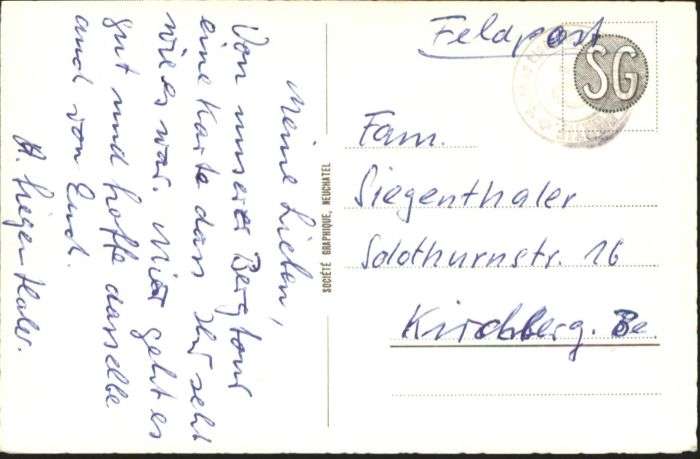 Meine Lieben,
Von unserer Bergtour
eine Karte dass Ihr seht
wie es war. Mir geht es
gut und hoffe dasselbe
auch von Euch.
H. Siegenthaler.
SOCIÉTÉ GRAPHIQUE, NEUCHATEL
Feldpost
SG
Fam.
Siegenthaler
Solothurnstr. 16
Kirchberg. Be.